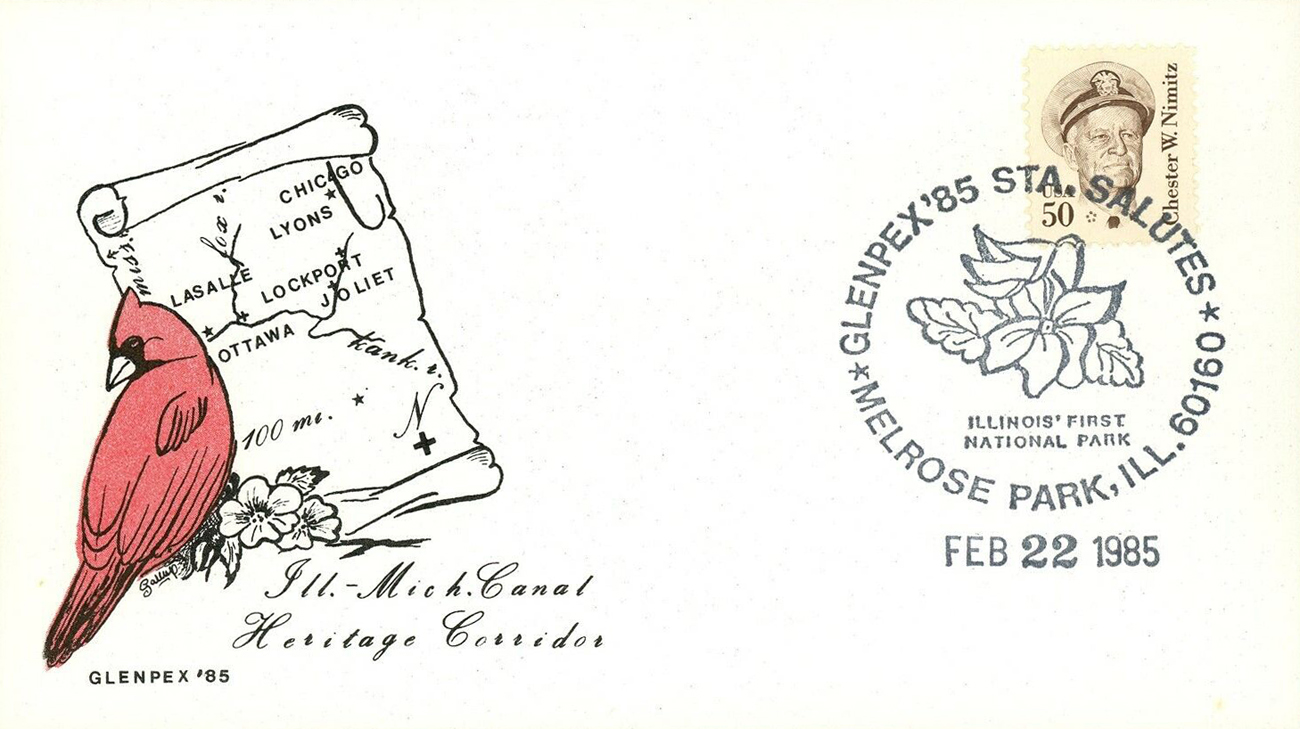 CHICAGO
LYONS
fox r.
LASALLE
LOCKPORT
JOLIET
OTTAWA
kank. r.
100 mi.
N
Ill.-Mich. Canal
Heritage Corridor
GLENPEX '85
Chester W. Nimitz
USA
50
★ GLENPEX '85 STA. SALUTES ★
ILLINOIS' FIRST
NATIONAL PARK
MELROSE PARK, ILL. 60160
FEB 22 1985